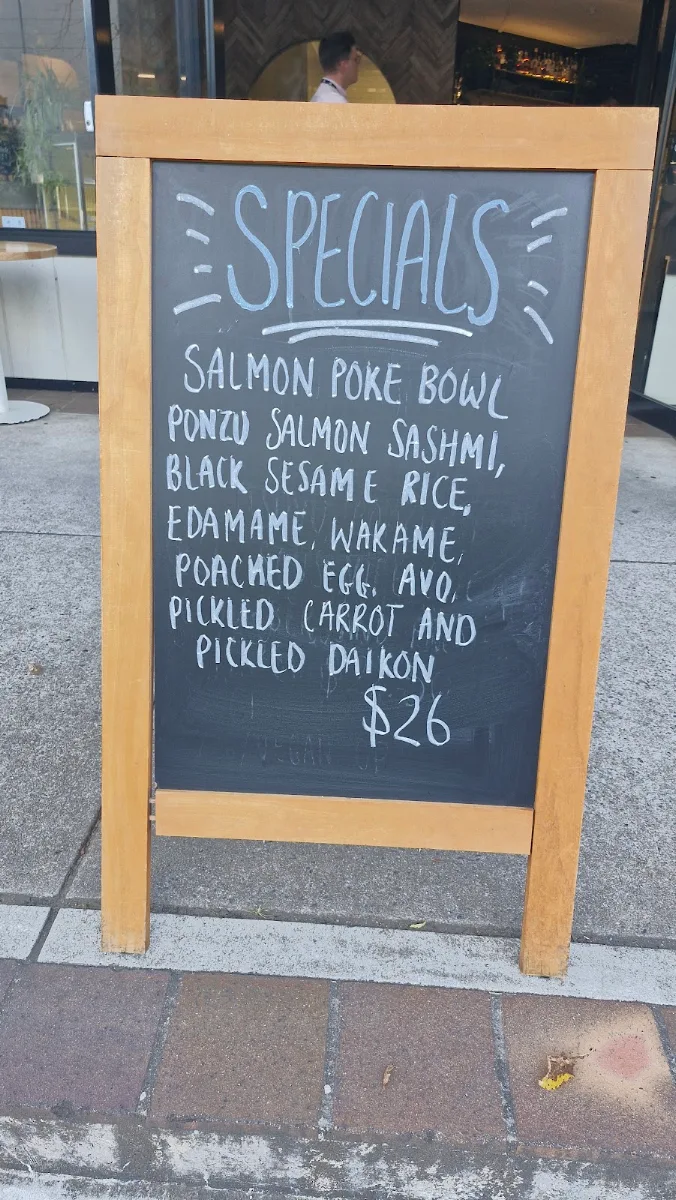 SPECIALS
SALMON POKE BOWL
PONZU SALMON SASHMI,
BLACK SESAME RICE,
EDAMAME, WAKAME,
POACHED EGG, AVO,
PICKLED CARROT AND
PICKLED DAIKON
$26
VEGAN